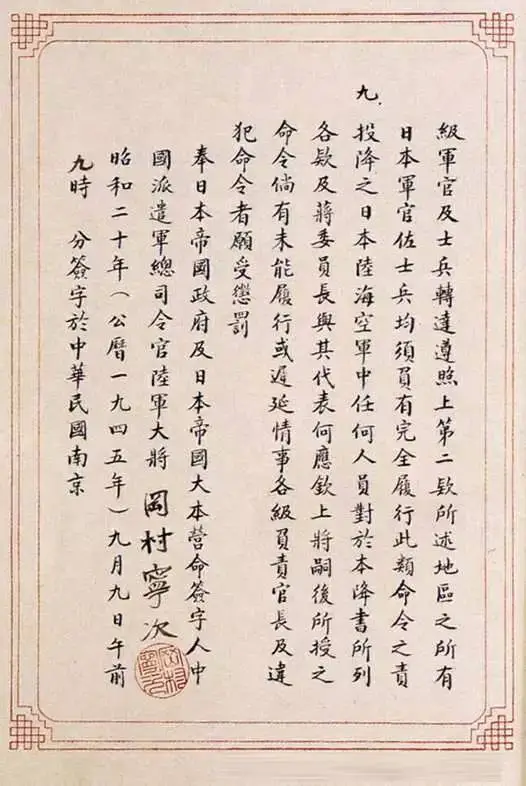 級軍官及士兵轉達遵照上第二款所述地區之所有
日本軍官佐士兵均須負有完全履行此類命令之責
九、
投降之日本陸海空軍中任何人員對於本降書所列
各款及蔣委員長與其代表何應欽上將嗣後所授之
命令倘有未能履行或遲延情事各級負責官長及違
犯命令者願受懲罰
奉日本帝國政府及日本帝國大本營命簽字人中
國派遣軍總司令官陸軍大將 岡村寧次
昭和二十年(公曆一九四五年)九月九日午前
九時 分簽字於中華民國南京
岡村寧次